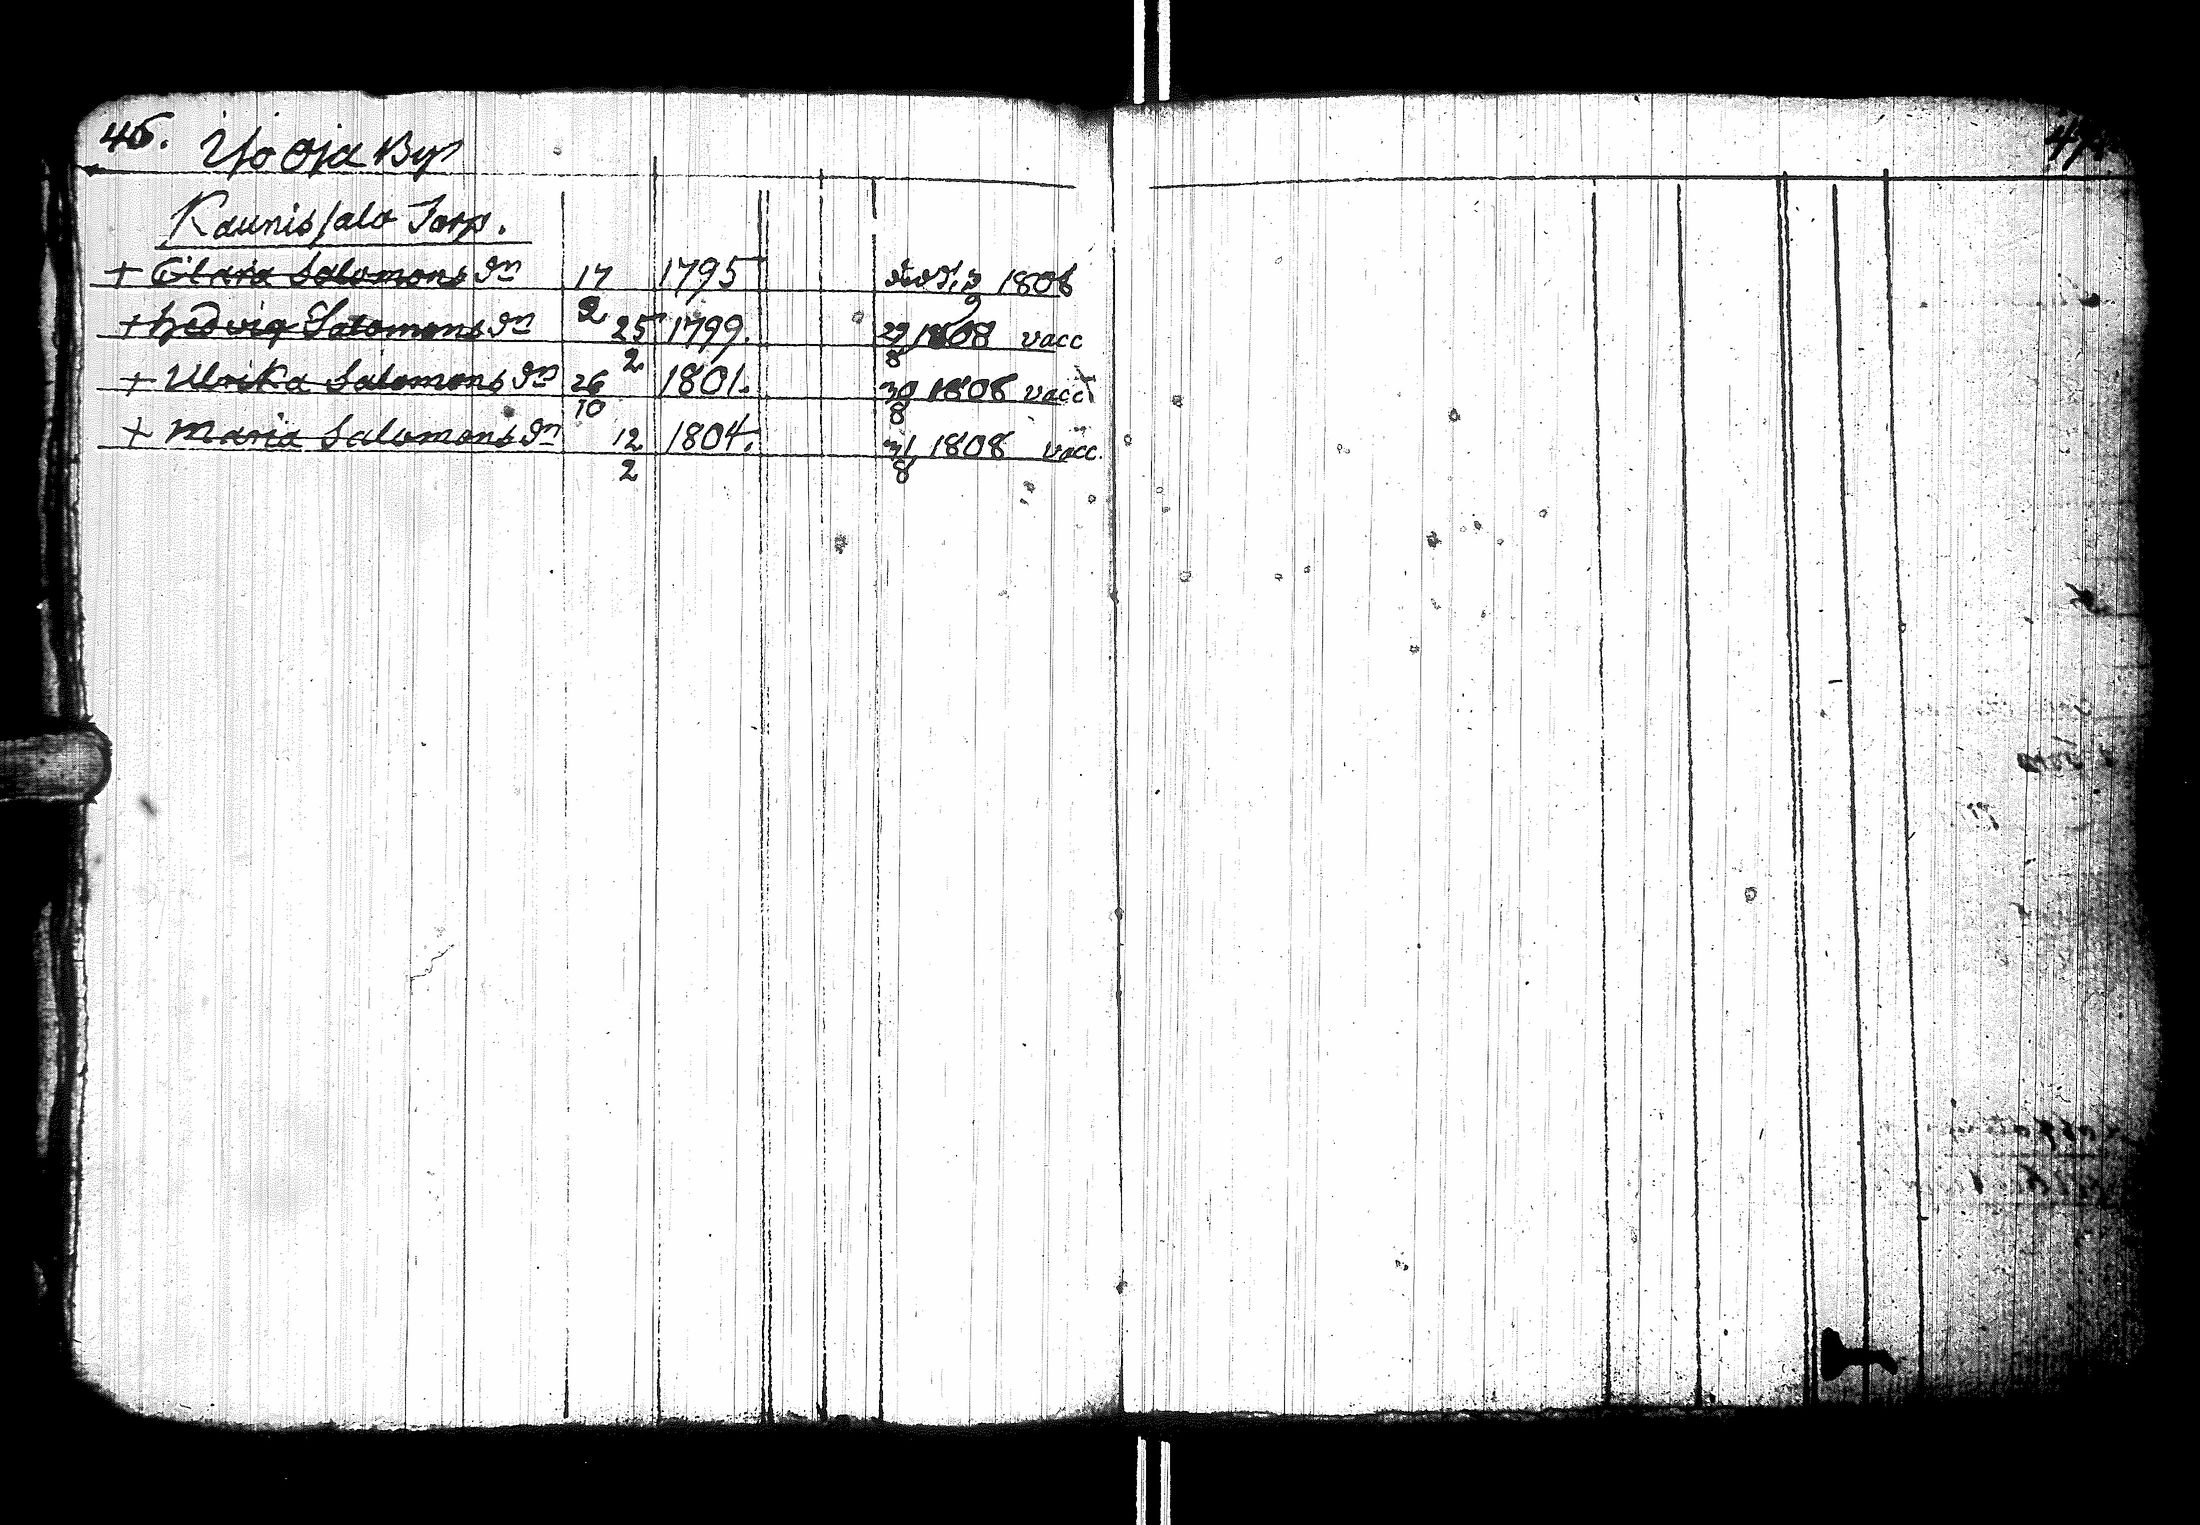 46. Yso Oja By
Kaunissalo Torp.
+ Clara Salomons dr 17/2 1795 död 3/9 1808
+ Hedvig Salomons dr 25/2 1799. 29/8 1808 vacc
+ Ulrika Salomons dr 26/10 1801. 30/8 1808 vacc
+ Maria Salomons dr 12/2 1804. 31/8 1808 vacc.
47.